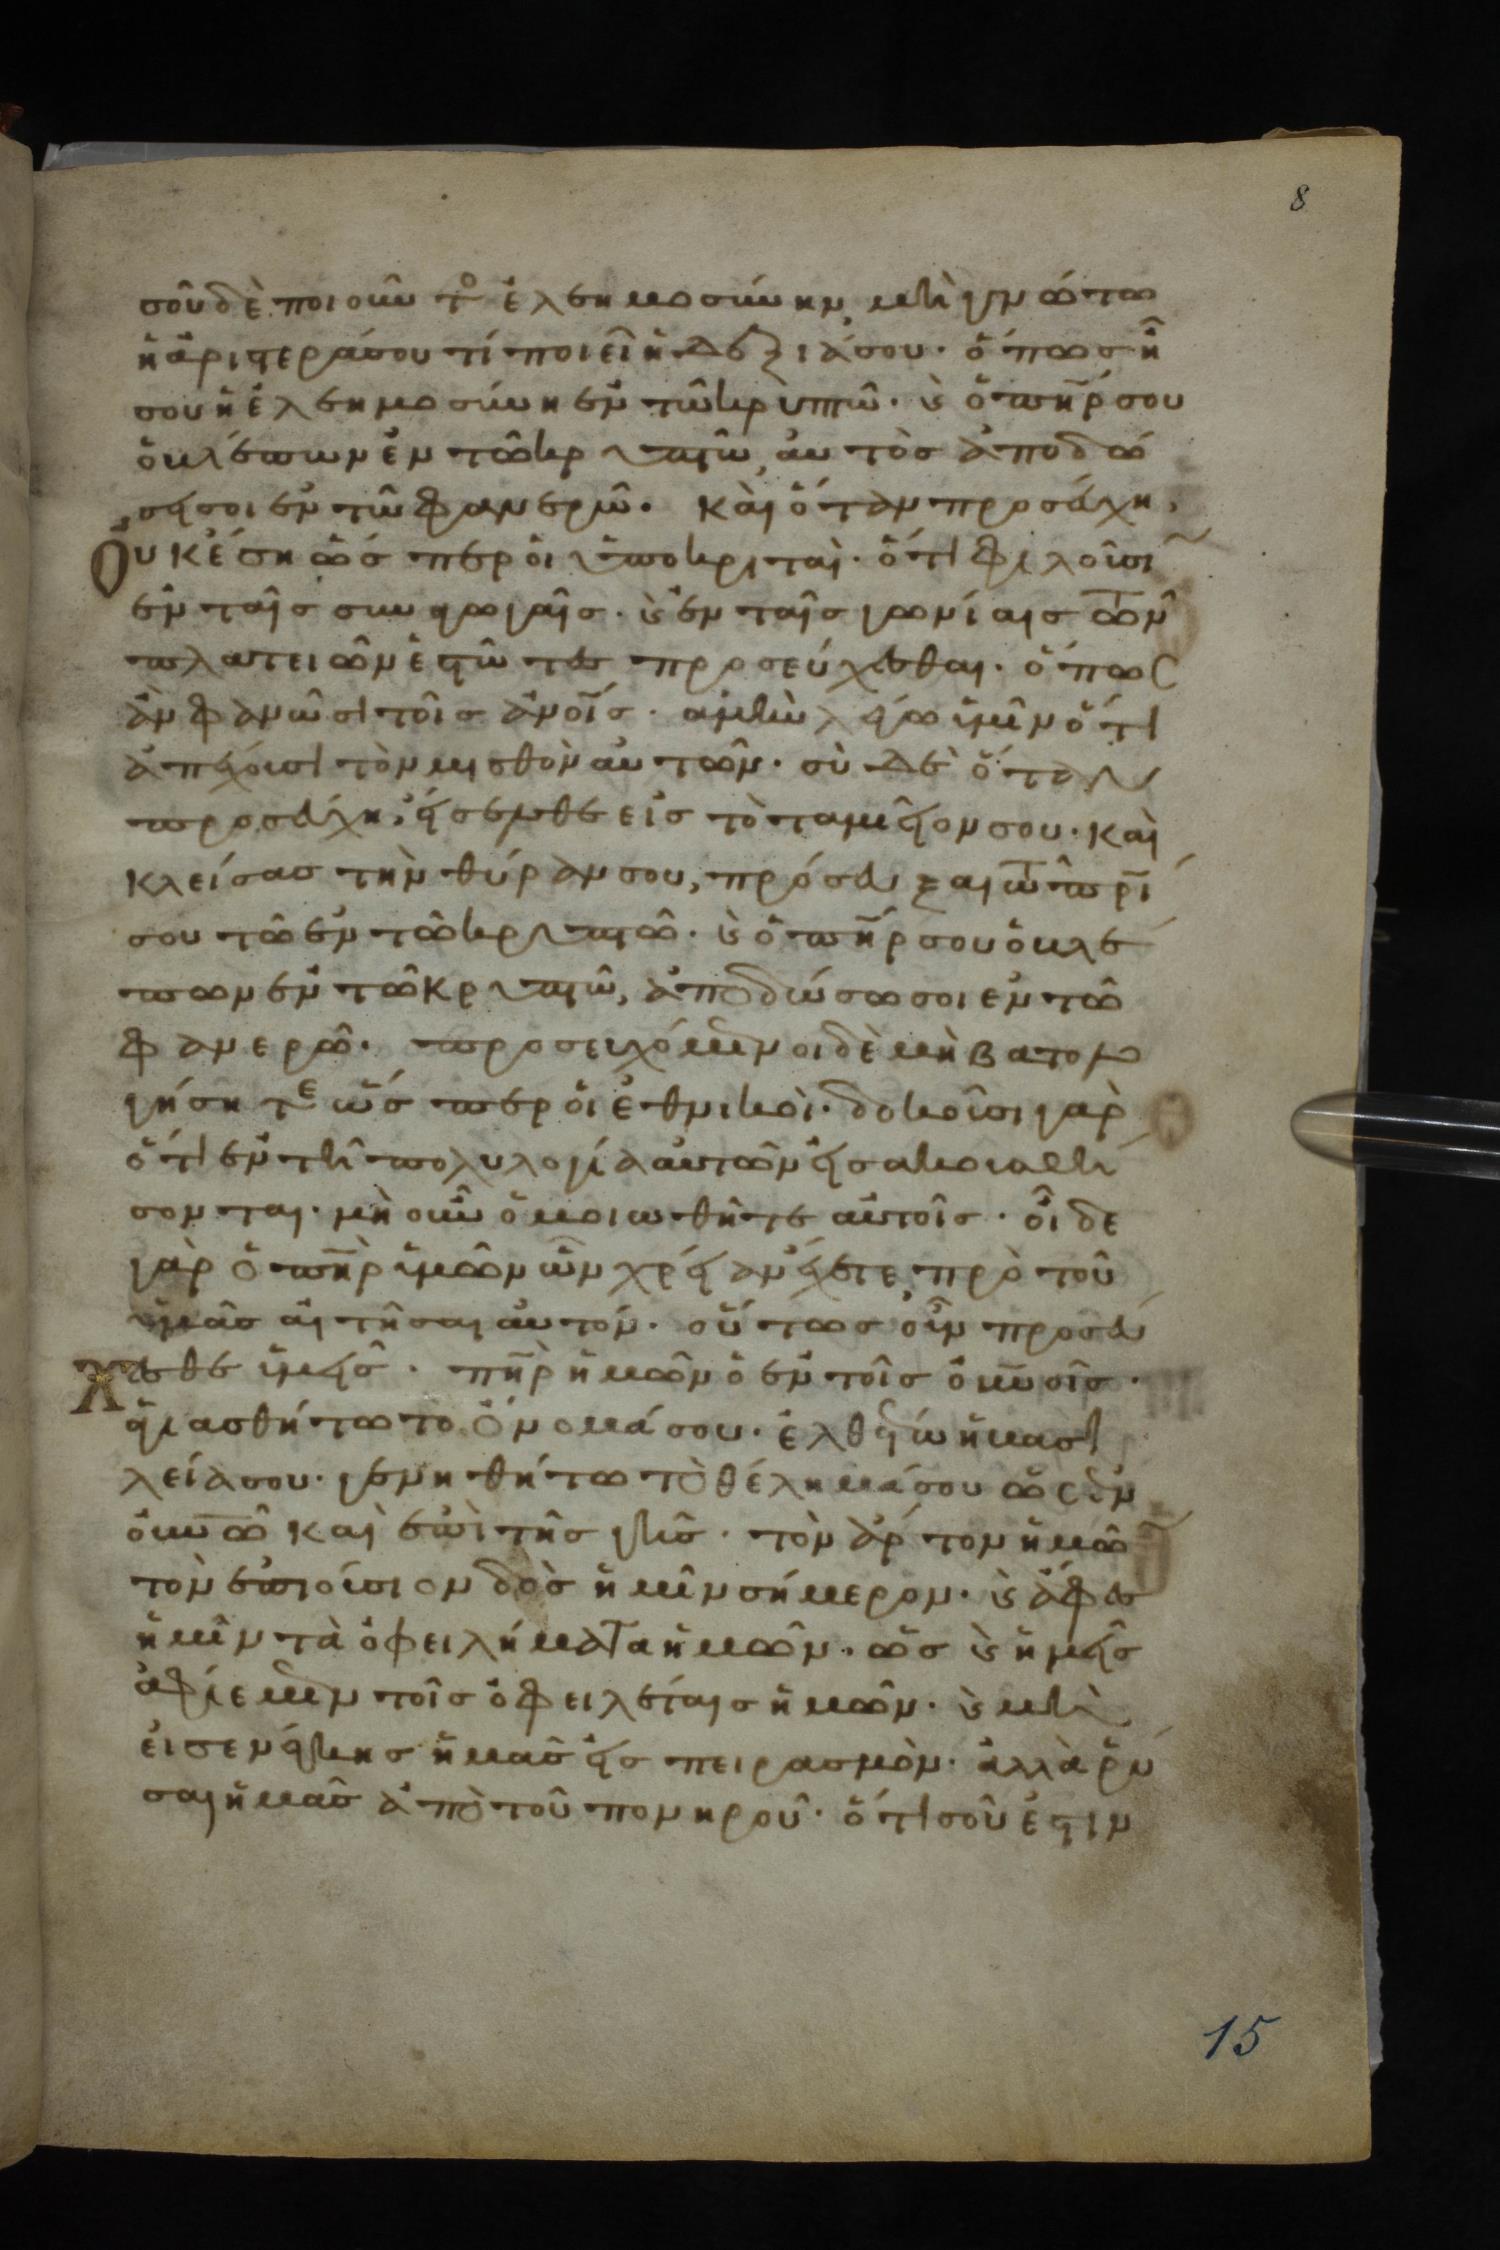 8
σοῦ δὲ ποιοῦντο ἐλεημοσύνην, μὴ γνώτω
ἡ ἀριστερά σου τί ποιεῖ ἡ δεξιά σου· ὅπως ἦ
σου ἡ ἐλεημοσύνη ἐν τῶ κρυπτῶ· κ ὁ πηρ σου
ὁ βλέπων ἐν τῶ κρυπτῶ, αὐτὸς ἀποδώ
σει σοι ἐν τῶ φανερῶ. καὶ ὅταν προσεύχη,
Οὐκ ἔση ὥσπερ οἱ ὑποκριταὶ· ὅτι φιλοῦσι
ἐν ταῖς συναγωγαῖς· κ ἐν ταῖς γωνίαις τῶν
πλατειῶν ἑστῶτες προσεύχεσθαι· ὅπως
ἂν φανῶσι τοῖς ἀνοις· ἀμὴν λέγω ὑμῖν ὅτι
ἀπέχουσι τὸν μισθὸν αὐτῶν· σὺ δὲ ὅταν
προσεύχη, εἴσελθε εἰς τὸ ταμεῖον σου· καὶ
κλείσας τὴν θύραν σου, πρόσευξαι τῶ πρι
σου τῶ ἐν τῶ κρυπτῶ· κ ὁ πηρ σου ὁ βλέ
πων ἐν τῶ κρυπτῶ, ἀποδώσω σοι ἐν τῶ
φανερῶ· προσευχόμενοι δὲ μὴ βατολο
γήσητε ὥσπερ οἱ ἐθνικοὶ· δοκοῦσι γὰρ
ὅτι ἐν τῆ πολυλογία αὐτῶν εἰσακουσθή
σονται· μὴ οὖν ὁμοιωθῆτε αὐτοῖς· οἶδε
γὰρ ὁ πηρ ὑμῶν ὧν χρείαν ἔχετε, πρὸ τοῦ
ὑμᾶς αἰτῆσαι αὐτόν· οὕτως οὖν προσεύ
Χεσθε ὑμεῖς· πηρ ἡμῶν ὁ ἐν τοῖς οὐνοῖς·
ἁγιασθήτω τὸ ὄνομά σου· ἐλθέτω ἡ βασι
λεία σου· γενηθήτω τὸ θέλημά σου ὡς ἐν
οὐνῶ καὶ ἐπὶ τῆς γῆς· τὸν ἄρτον ἡμῶ
τὸν ἐπιούσιον δὸς ἡμῖν σήμερον· κ ἄφες
ἡμῖν τὰ ὀφειλήματα ἡμῶν· ὡς κ ἡμεῖς
ἀφίεμεν τοῖς ὀφειλέταις ἡμῶν· κ μὴ
εἰσενέγκης ἡμᾶς εἰς πειρασμὸν· ἀλλὰ ῥῦ
σαι ἡμᾶς ἀπὸ τοῦ πονηροῦ· ὅτι σοῦ ἐστιν
15